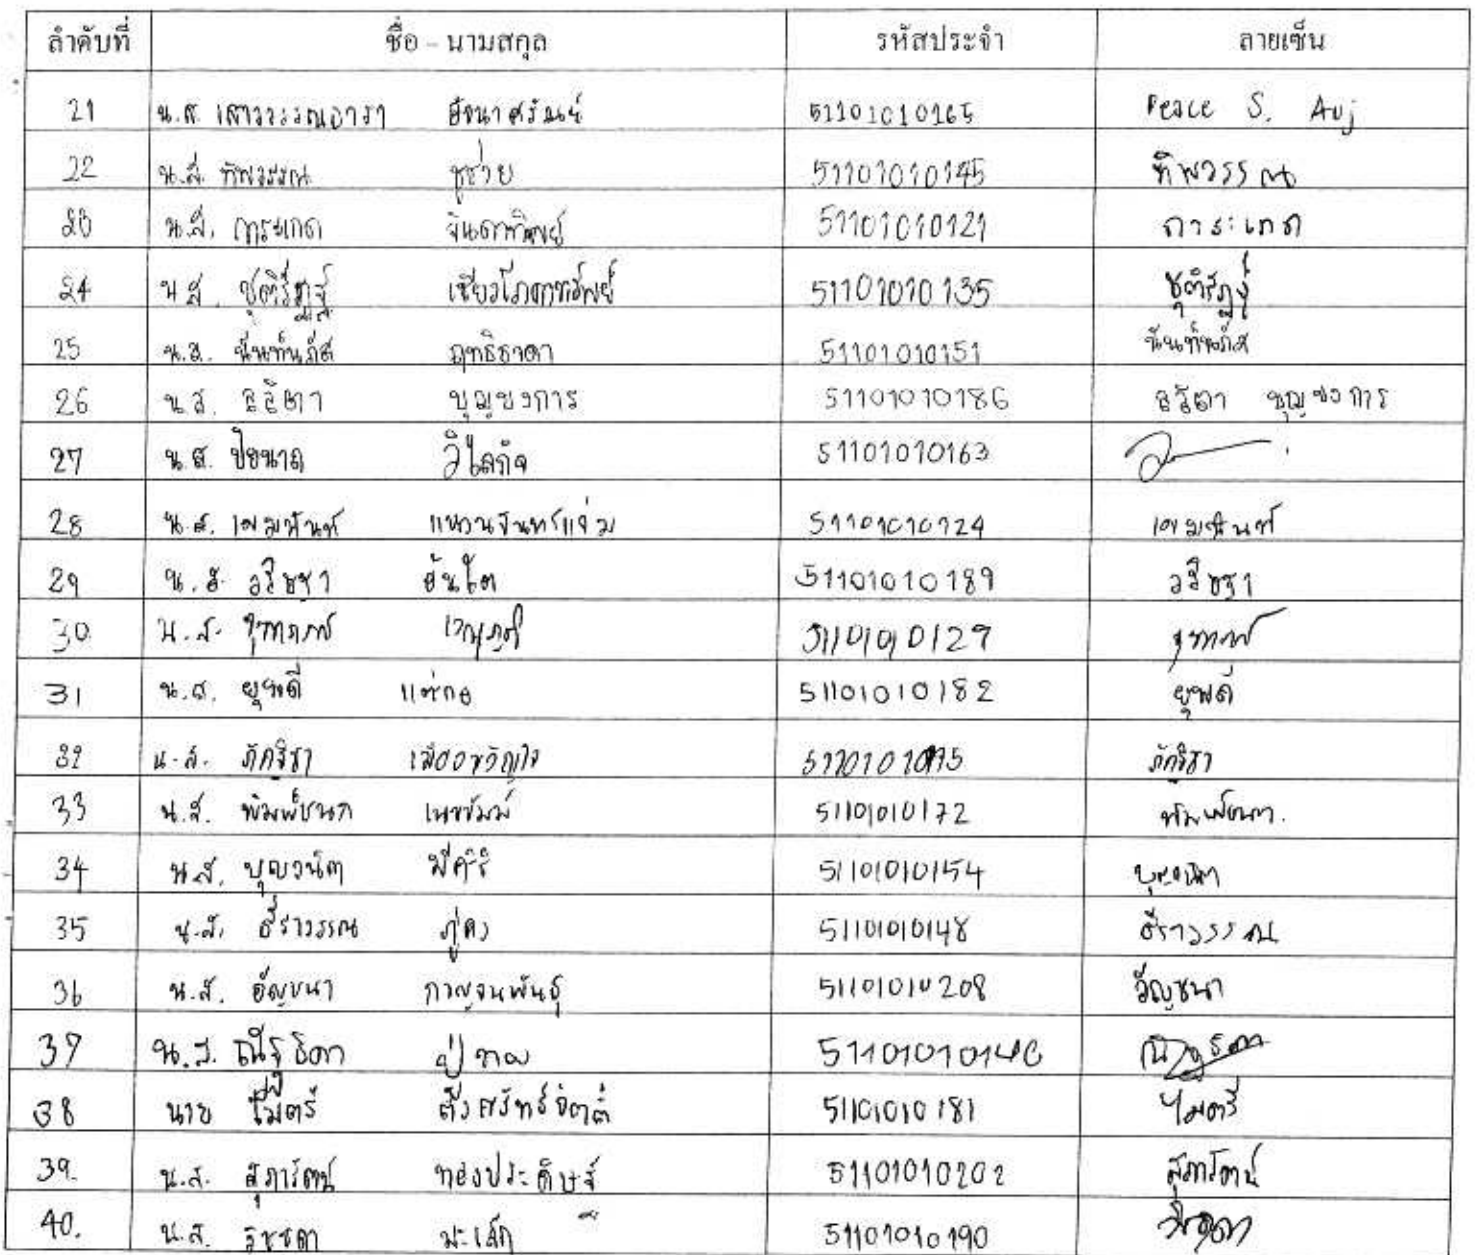 ลำดับที่ ชื่อ - นามสกุล รหัสประจำ ลายเซ็น
21 น.ส. เสาวรรณอารา 51101010165 Peace S. Auj
22 น.ส. ทิพวรรณ ชูช่วย 51101010145 ทิพวรรณ
23 น.ส. การะเกด จินดาทิพย์ 51101010121 การะเกด
24 น.ส. ชุติรัฎฐ์ เชียวโภคาทรัพย์ 51101010135 ชุติรัฎฐ์
25 น.ส. นันท์นภัส ฤทธิธาดา 51101010151 นันท์นภัส
26 น.ส. ธริตา บุญยงการ 51101010186 ธริตา บุญยงการ
27 น.ส. ปิยนาถ วิไลกิจ 51101010163
28 น.ส. เขมนันท์ แหวนจันทร์แจ่ม 51101010124 เขมนันท์
29 น.ส. วริชชา อ้นโต 51101010189 วริชชา
30 น.ส. จุฑาภรณ์ 51101010129 จุฑาภรณ์
31 น.ส. ยุพดี แต่กอ 51101010182 ยุพดี
32 น.ส. ภัคริชา 51101010175 ภัคริชา
33 น.ส. พิมพ์ชนก 51101010172 พิมพ์ชนก
34 น.ส. บุญวนิต มีศิริ 51101010154
35 น.ส. ธีราวรรณ ภู่คง 51101010148 ธีราวรรณ
36 น.ส. อัญชนา กาญจนพันธุ์ 51101010208 อัญชนา
37 น.ส. ณัฐธิดา ปู่ทอง 51101010140
38 นาย ไมตรี ตั้งศรัทธ์จิตต์ 51101010181 ไมตรี
39. น.ส. สุภารัตน์ ทองประดิษฐ์ 51101010202 สุภารัตน์
40. น.ส. รัชชดา มะเล็ก 51101010190